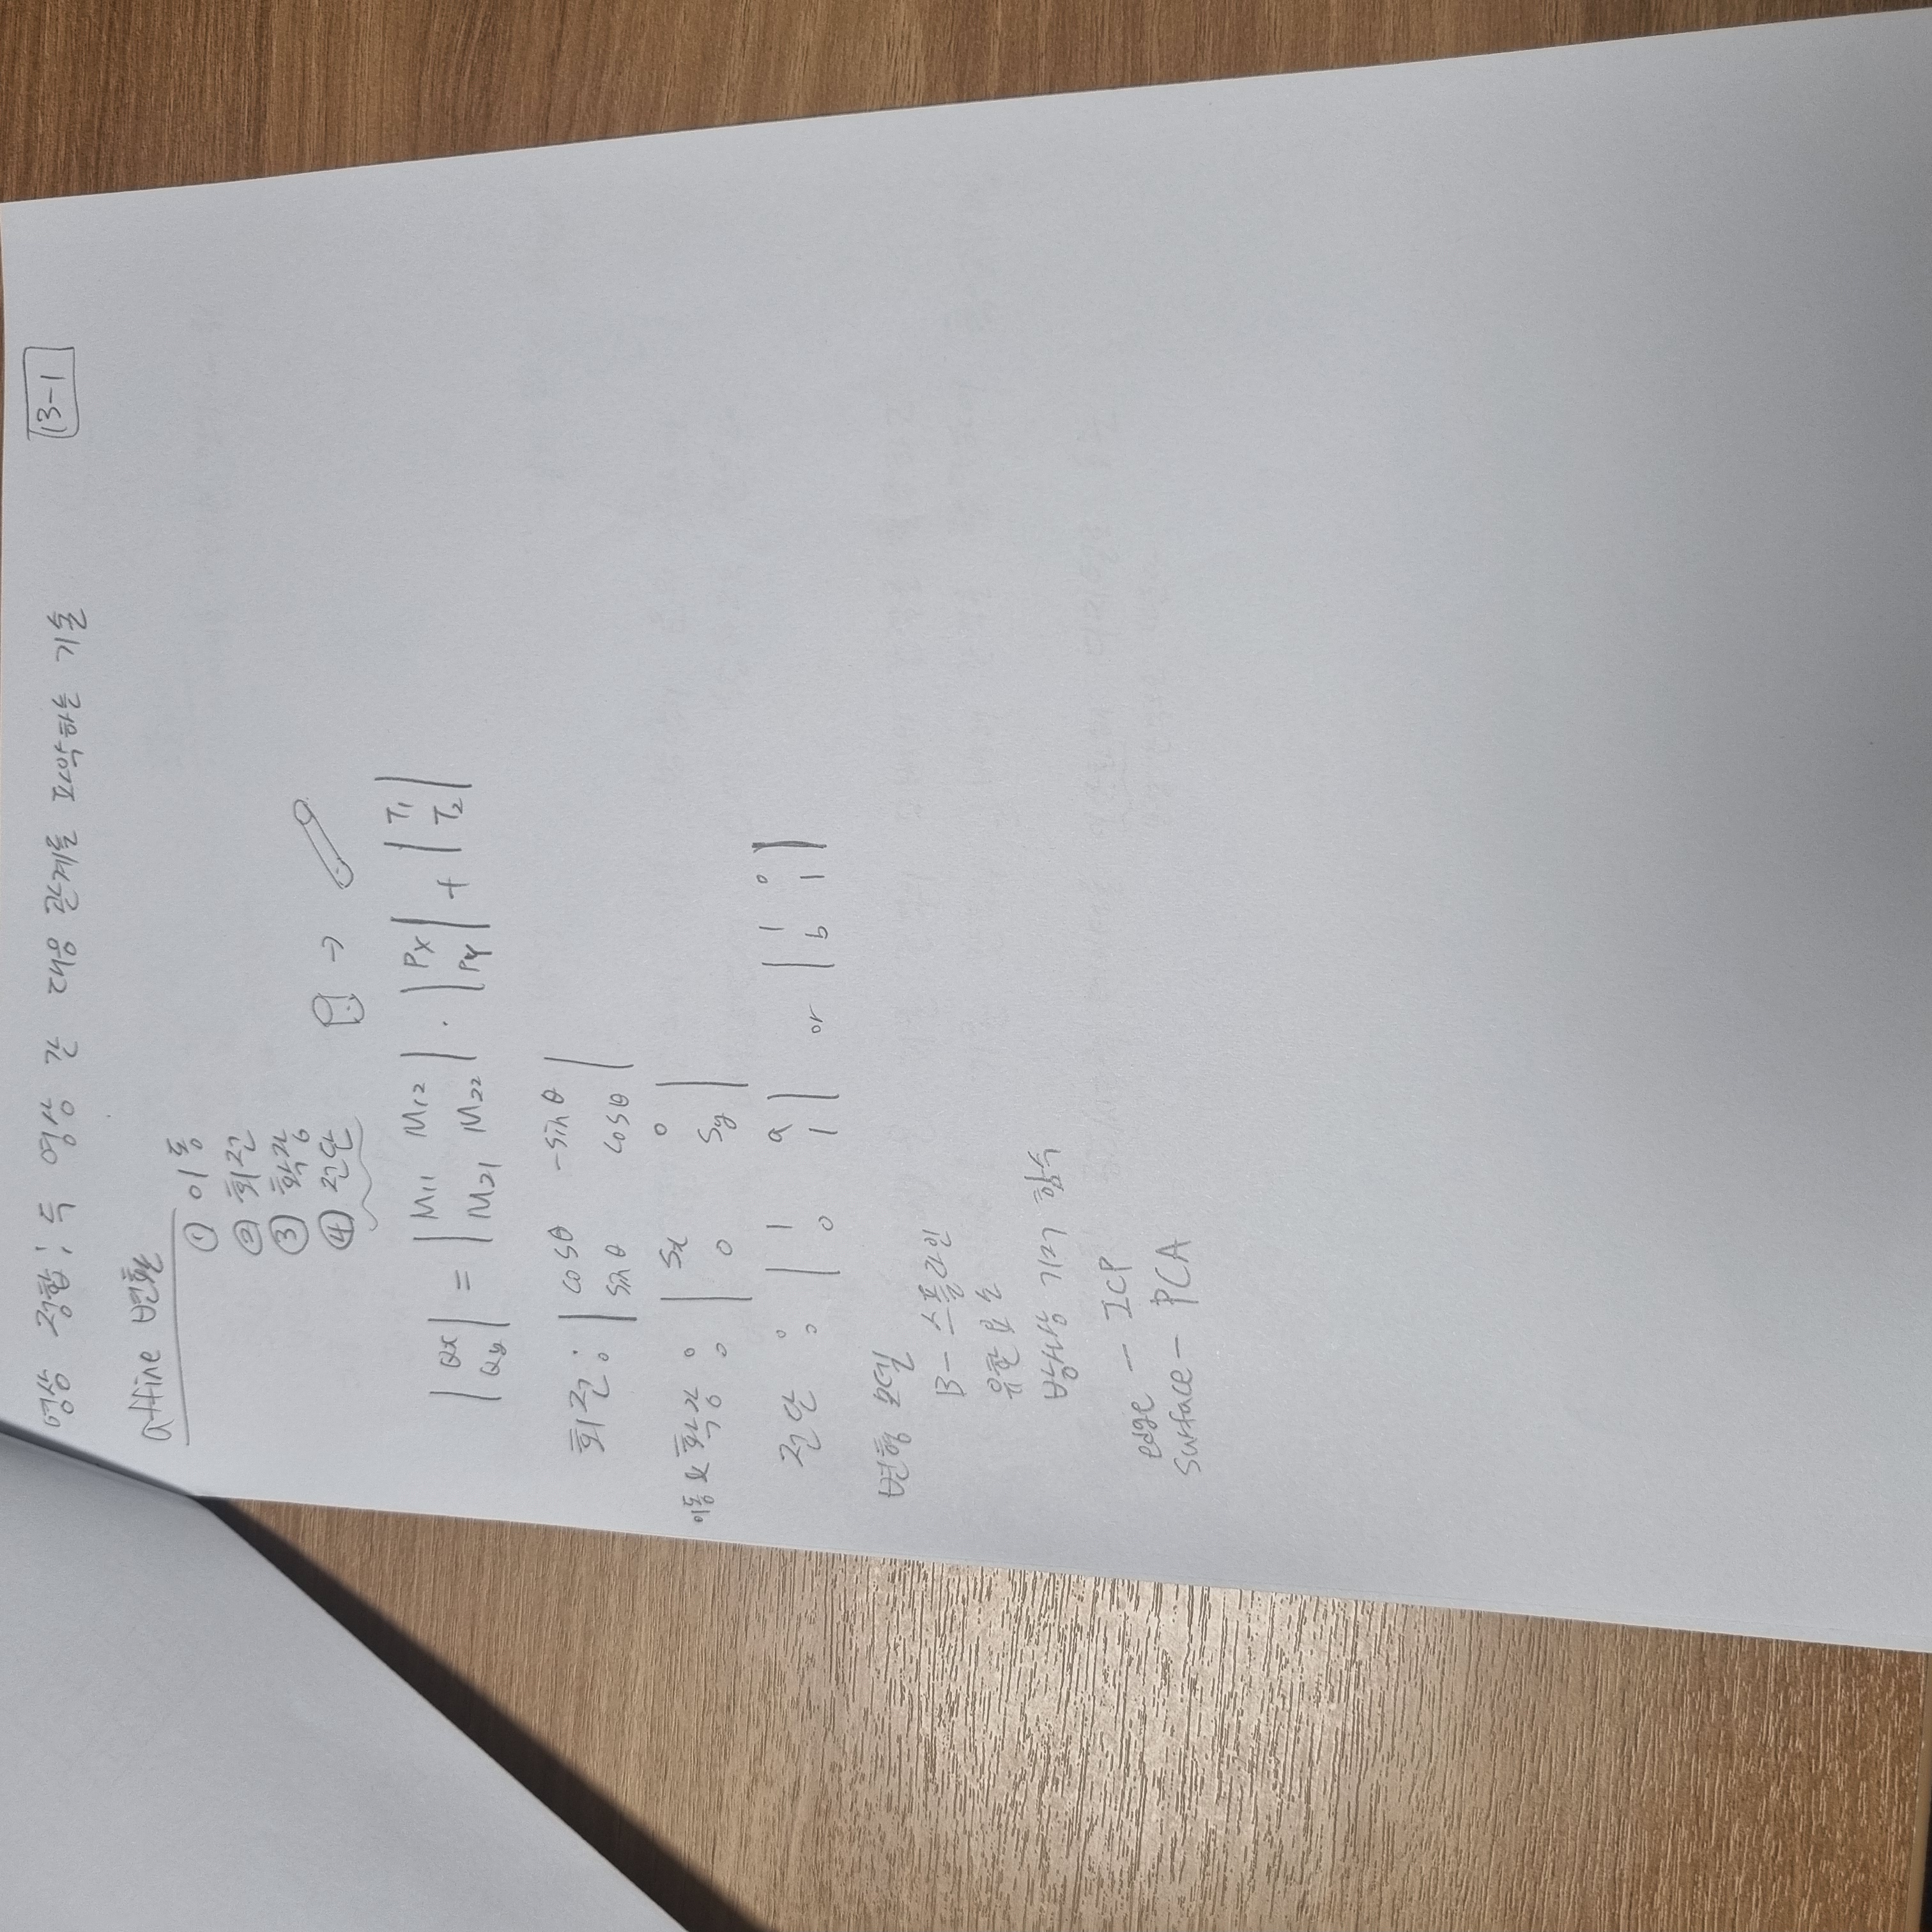 영상 정합 : 두 영상 간 대응 관계를 파악하는 기술
13-1
affine 변환
① 이동
② 회전
③ 확장
④ 전단 →
| Qx | = | M11 M12 | · | Px | + | T1 |
| Qy | | M21 M22 | | Py | | T2 |
회전 : | cosθ -sinθ |
| sinθ cosθ |
이동 & 확장 : | Sx 0 |
| 0 Sy |
전단 : | 1 a | or | 1 0 |
| 0 1 | | b 1 |
변형 모델
B- 스플라인
유한요소
방사상 기저 함수
edge - ICP
surface - PCA